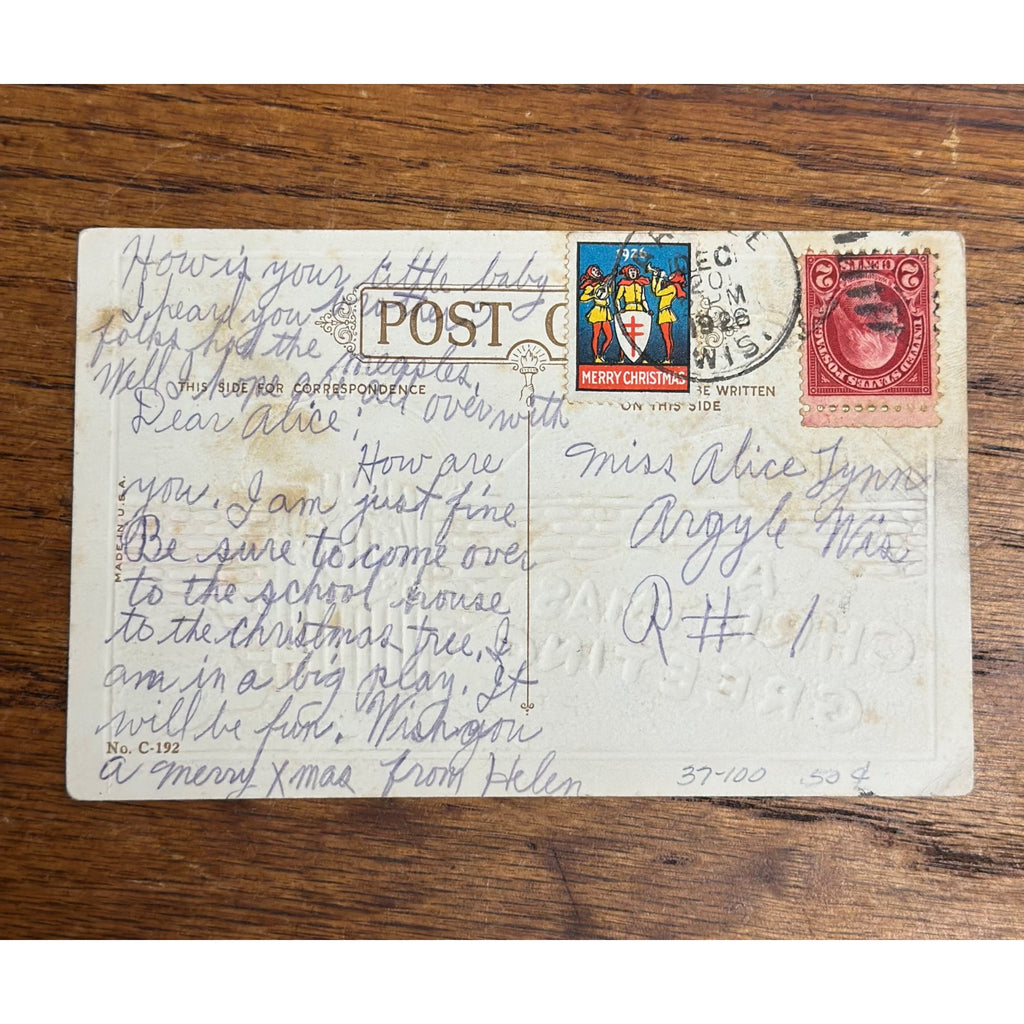 How is your little baby
I heard you
folks had the measles.
Well I hope over with
POST C
1926
MERRY CHRISTMAS
DEC
20
PM
1926
WIS.
2 CENTS 2
UNITED STATES POSTAGE
THIS SIDE FOR CORRESPONDENCE
BE WRITTEN
ON THIS SIDE
MADE IN U.S.A.
Dear Alice,
How are
you. I am just fine
Be sure to come over
to the school house
to the christmas tree. I
am in a big play. It
will be fun. Wish you
a merry Xmas from Helen
Miss Alice Lynn
Argyle Wis
R # 1
A
CHRISTMAS
GREETING
No. C-192
37-100 .50¢